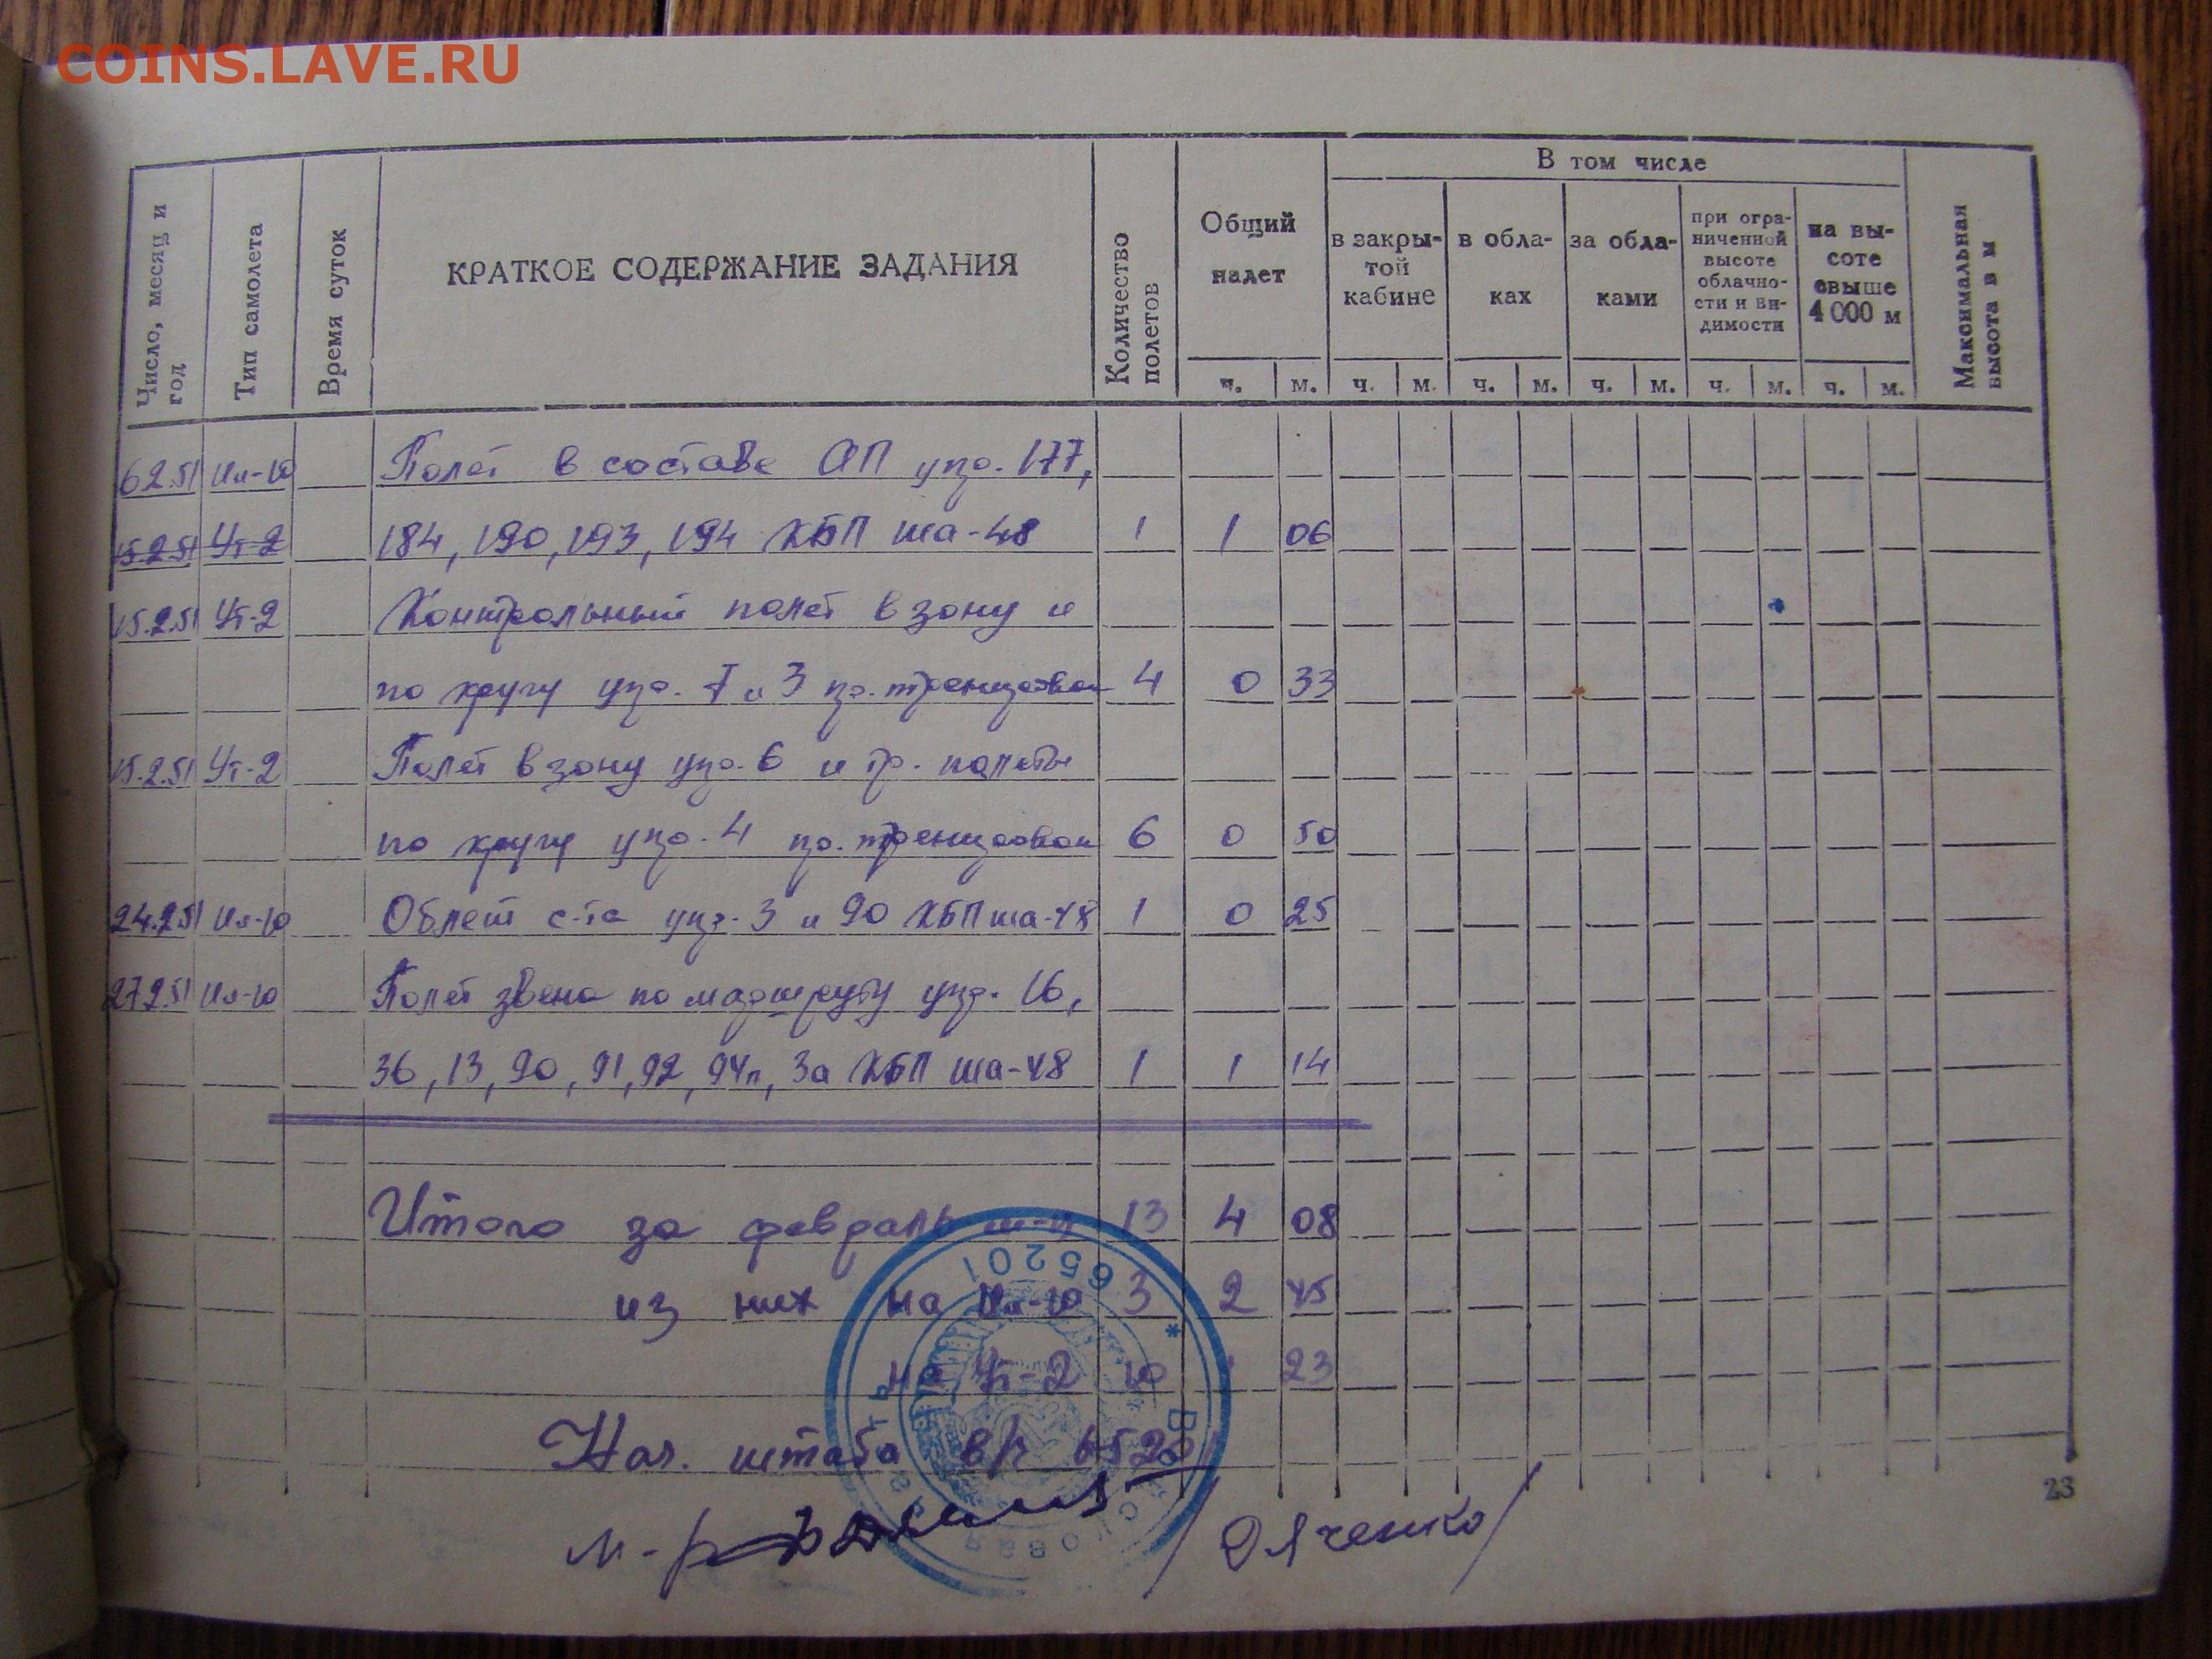 COINS.LAVE.RU
Число, месяц и год
Тип самолета
Время суток
КРАТКОЕ СОДЕРЖАНИЕ ЗАДАНИЯ
Количество полетов
Общий налет
В том числе
в закры-
той
кабине
в обла-
ках
за обла-
ками
при огра-
ниченной
высоте
облачно-
сти и ви-
димости
на вы-
соте
свыше
4 000 м
Максимальная
высота в м
ч. м. ч. м. ч. м. ч. м. ч. м. ч. м.
6 2.51 Ил-10 Полет в составе АП упр. 177,
15.2.51 Ут-2 184, 190, 193, 194 КБП ша-48 1 1 06
15.2.51 Ут-2 Контрольный полет в зону и
по кругу упр. 1 и 3 пр. тренировок 4 0 33
15.2.51 Ут-2 Полет в зону упр. 6 и тр. полеты
по кругу упр. 4 пр. тренировок 6 0 50
24.2.51 Ил-10 Облет с-та упр. 3 и 90 КБП ша-48 1 0 25
27.2.51 Ил-10 Полет звена по маршруту упр. 16,
36, 13, 90, 91, 92, 94п, 3а КБП ша-48 1 1 14
Итого за февраль м-ц 13 4 08
из них на Ил-10 3 2 45
на Ут-2 10 1 23
Нач. штаба в/ч 65201
м-р /Дяченко/
65201
23